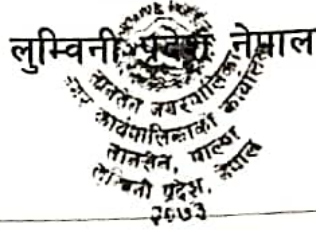 लुम्विनी प्रदेश, नेपाल
तानसेन नगरपालिका
नगर कार्यपालिकाको कार्यालय
तानसेन, पाल्पा
लुम्बिनी प्रदेश, नेपाल
२०७३